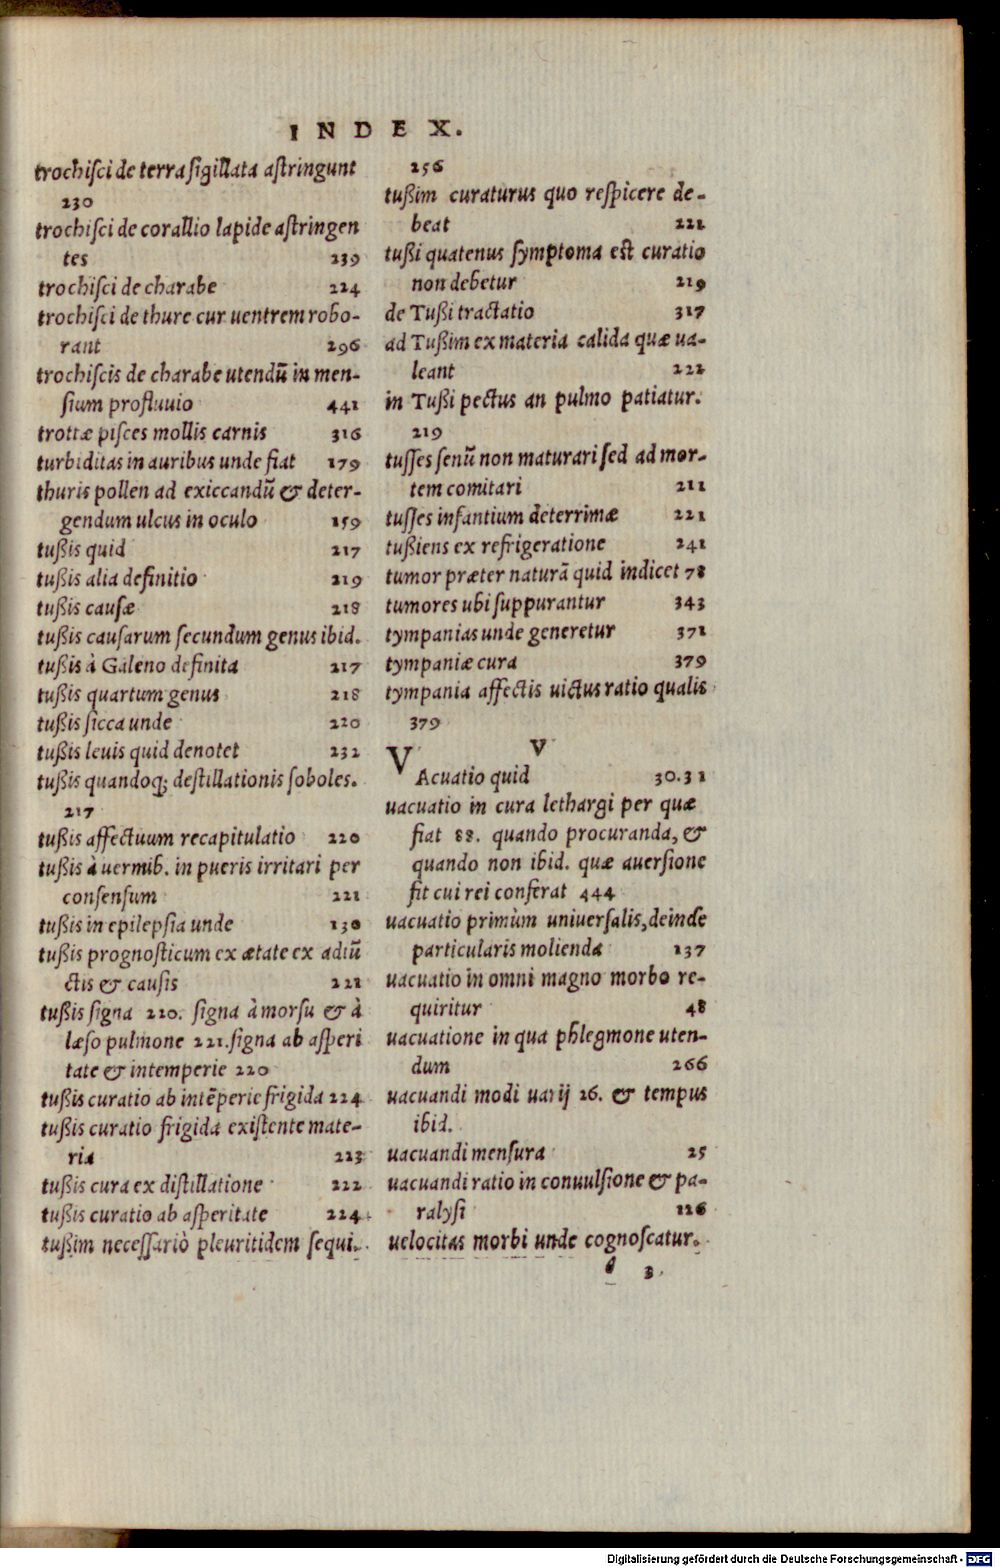 INDEX.
trochisci de terra sigillata astringunt
230
trochisci de corallio lapide astringen
tes 239
trochisci de charabe 224
trochisci de thure cur uentrem robo-
rant 296
trochiscis de charabe utendū in men-
sium profluuio 441
trottæ pisces mollis carnis 316
turbiditas in auribus unde fiat 179
thuris pollen ad exiccandū & deter-
gendum ulcus in oculo 159
tußis quid 217
tußis alia definitio 219
tußis causæ 218
tußis causarum secundum genus ibid.
tußis à Galeno definita 217
tußis quartum genus 218
tußis sicca unde 220
tußis leuis quid denotet 232
tußis quandoq; destillationis soboles.
217
tußis affectuum recapitulatio 220
tußis à uermib. in pueris irritari per
consensum 221
tußis in epilepsia unde 130
tußis prognosticum ex ætate ex adiū
ctis & causis 221
tußis signa 220. signa à morsu & à
læso pulmone 221. signa ab asperi
tate & intemperie 220
tußis curatio ab intēperie frigida 224
tußis curatio frigida existente mate-
ria 223
tußis cura ex distillatione 222
tußis curatio ab asperitate 224
tußim necessariò pleuritidem sequi.
256
tußim curaturus quo respicere de-
beat 221
tußi quatenus symptoma est curatio
non debetur 219
de Tußi tractatio 317
ad Tußim ex materia calida quæ ua-
leant 222
in Tußi pectus an pulmo patiatur.
219
tusses senū non maturari sed ad mor-
tem comitari 211
tusses infantium deterrimæ 221
tußiens ex refrigeratione 241
tumor præter naturā quid indicet 78
tumores ubi suppurantur 343
tympanias unde generetur 371
tympaniæ cura 379
tympania affectis uictus ratio qualis
379
V
VAcuatio quid 30.31
uacuatio in cura lethargi per quæ
fiat 88. quando procuranda, &
quando non ibid. quæ auersione
fit cui rei conferat 444
uacuatio primùm uniuersalis, deinde
particularis molienda 137
uacuatio in omni magno morbo re-
quiritur 48
uacuatione in qua phlegmone uten-
dum 266
uacuandi modi uarij 26. & tempus
ibid.
uacuandi mensura 25
uacuandi ratio in conuulsione & pa-
ralysi 126
uelocitas morbi unde cognoscatur.
3
Digitalisierung gefördert durch die Deutsche Forschungsgemeinschaft - DFG